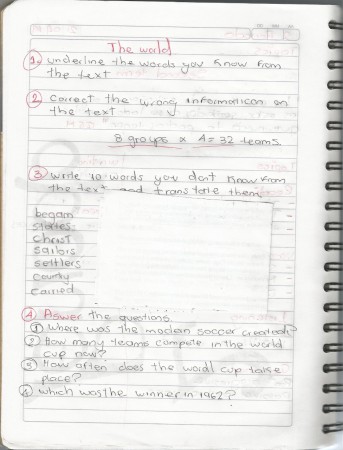 The world
1. underline the words you know from
the text
2. correct the wrong information on
the text
8 groups x 4 = 32 teams
3. write 10 words you dont know from
the text and translate them.
began
stories
christ
sailors
settlers
country
carried
4. Answer the questions.
1 Where was the modern soccer created?
2 How many teams compete in the world
cup now?
3 How often does the world cup take
place?
4 which was the winner in 1962?